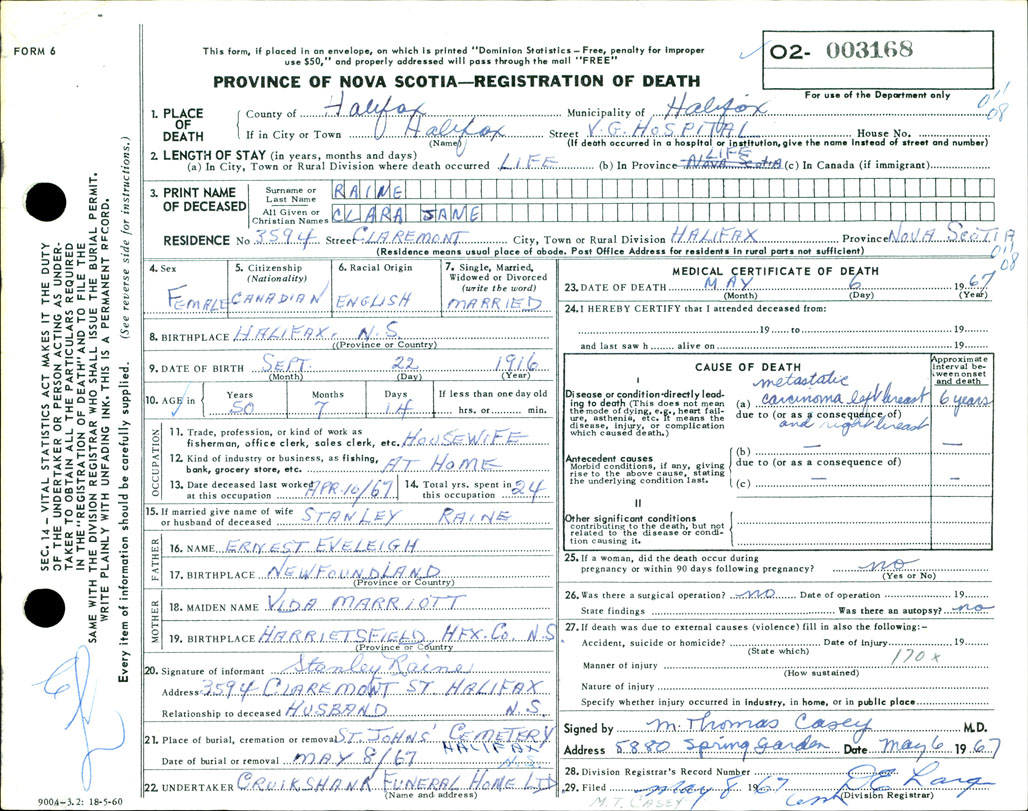 FORM 6
This form, if placed in an envelope, on which is printed "Dominion Statistics – Free, penalty for improper
use $50," and properly addressed will pass through the mail "FREE"
O2- 003168
For use of the Department only
PROVINCE OF NOVA SCOTIA—REGISTRATION OF DEATH
01/08
1. PLACE OF DEATH
County of Halifax Municipality of Halifax
If in City or Town Halifax Street V.G. HOSPITAL House No.
(Name) (If death occurred in a hospital or institution, give the name instead of street and number)
2. LENGTH OF STAY (in years, months and days)
(a) In City, Town or Rural Division where death occurred LIFE (b) In Province LIFE NOVA SCOTIA (c) In Canada (if immigrant)
3. PRINT NAME OF DECEASED
Surname or Last Name RAINE
All Given or Christian Names CLARA JANE
RESIDENCE No 3594 Street CLAREMONT City, Town or Rural Division HALIFAX Province NOVA SCOTIA
(Residence means usual place of abode. Post Office Address for residents in rural parts not sufficient)
01/08
4. Sex
FEMALE
5. Citizenship (Nationality)
CANADIAN
6. Racial Origin
ENGLISH
7. Single, Married, Widowed or Divorced (write the word)
MARRIED
8. BIRTHPLACE HALIFAX, N.S.
(Province or Country)
9. DATE OF BIRTH SEPT. 22 1916
(Month) (Day) (Year)
10. AGE in
Years Months Days If less than one day old
50 7 14 hrs. or min.
OCCUPATION
11. Trade, profession, or kind of work as
fisherman, office clerk, sales clerk, etc. HOUSEWIFE
12. Kind of industry or business, as fishing,
bank, grocery store, etc. AT HOME
13. Date deceased last worked
at this occupation APR.10/67
14. Total yrs. spent in
this occupation 24
15. If married give name of wife
or husband of deceased STANLEY RAINE
FATHER
16. NAME ERNEST EVELEIGH
17. BIRTHPLACE NEWFOUNDLAND
(Province or Country)
MOTHER
18. MAIDEN NAME VIDA MARRIOTT
19. BIRTHPLACE HARRIETSFIELD HFX. CO. N.S.
(Province or Country)
20. Signature of informant Stanley Raine
Address 3594 CLAREMONT ST HALIFAX
Relationship to deceased HUSBAND N.S.
21. Place of burial, cremation or removal ST. JOHNS' CEMETERY
HALIFAX
Date of burial or removal MAY 8/67 N.S.
22. UNDERTAKER CRUIKSHANK FUNERAL HOME LTD
(Name and address)
MEDICAL CERTIFICATE OF DEATH
23. DATE OF DEATH MAY 6 1967
(Month) (Day) (Year)
24. I HEREBY CERTIFY that I attended deceased from:
19 to 19
and last saw h alive on 19
CAUSE OF DEATH
Approximate interval between onset and death
I
Disease or condition directly leading to death (This does not mean
the mode of dying, e.g., heart failure, asthenia, etc. It means the
disease, injury, or complication
which caused death.)
metastatic
(a) carcinoma left breast 6 years
due to (or as a consequence of)
and right breast
Antecedent causes
Morbid conditions, if any, giving
rise to the above cause, stating
the underlying condition last.
(b) — —
due to (or as a consequence of)
(c) — —
II
Other significant conditions
contributing to the death, but not
related to the disease or condition causing it.
25. If a woman, did the death occur during
pregnancy or within 90 days following pregnancy? no
(Yes or No)
26. Was there a surgical operation? no Date of operation 19
State findings Was there an autopsy? no
27. If death was due to external causes (violence) fill in also the following:–
Accident, suicide or homicide? Date of injury 19
(State which)
170 x
Manner of injury
(How sustained)
Nature of injury
Specify whether injury occurred in industry, in home, or in public place
Signed by M. Thomas Casey M.D.
Address 5880 Spring Garden Date May 6 1967
28. Division Registrar's Record Number
29. Filed May 8 1967
(Division Registrar)
M.T. CASEY
SEC. 14 – VITAL STATISTICS ACT MAKES IT THE DUTY
OF THE UNDERTAKER OR PERSON ACTING AS UNDERTAKER TO OBTAIN ALL THE PARTICULARS REQUIRED
IN THE "REGISTRATION OF DEATH" AND TO FILE THE
SAME WITH THE DIVISION REGISTRAR WHO SHALL ISSUE THE BURIAL PERMIT.
WRITE PLAINLY WITH UNFADING INK. THIS IS A PERMANENT RECORD.
Every item of information should be carefully supplied. (See reverse side for instructions.)
900A-3.2: 18-5-60